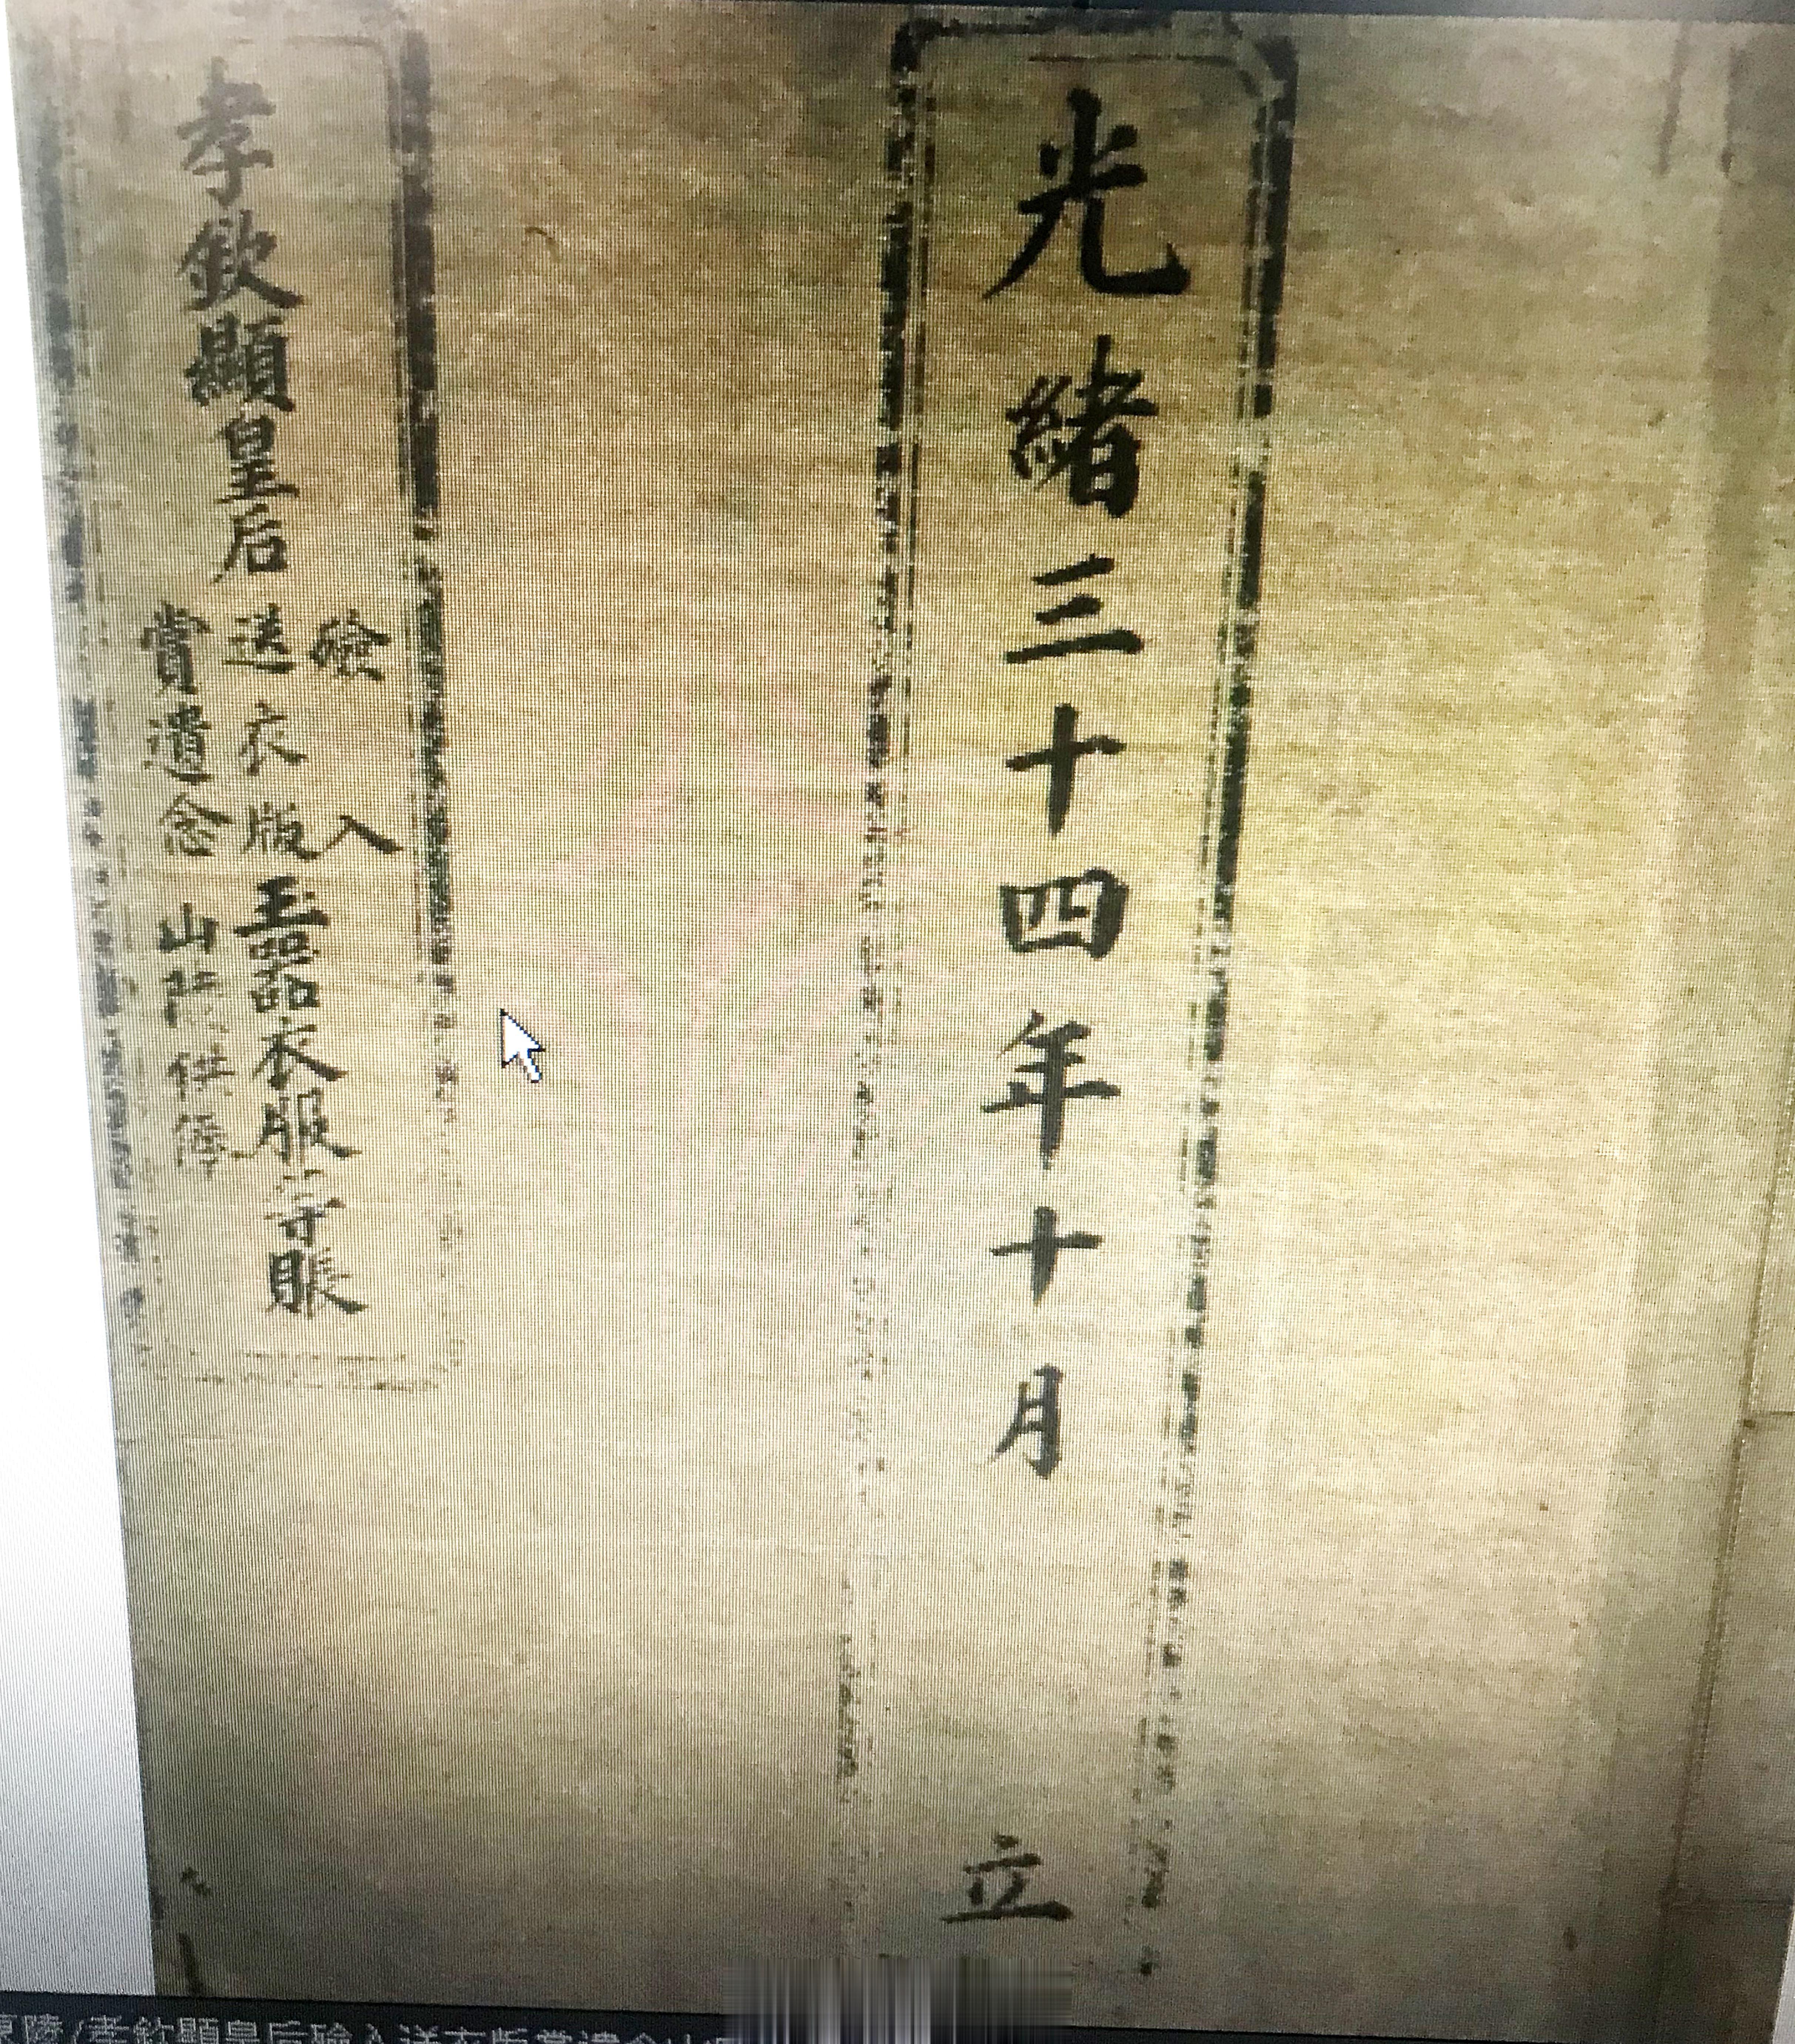 光緒三十四年十月 立
孝欽顯皇后
殮入
送衣版玉器衣服等賬
賞遺念山
陵 孝欽顯皇后殮入送衣版賞遺念